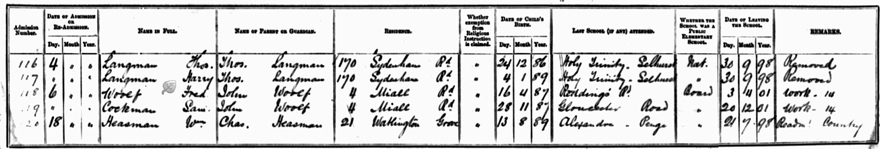 Admission Number. DATE OF ADMISSION OR RE-ADMISSION. NAME IN FULL. NAME OF PARENT OR GUARDIAN. RESIDENCE. Whether exemption from Religious Instruction is claimed. DATE OF CHILD'S BIRTH. LAST SCHOOL (IF ANY) ATTENDED. WHETHER THE SCHOOL WAS A PUBLIC ELEMENTARY SCHOOL. DATE OF LEAVING THE SCHOOL. REMARKS.
Day. Month Year. Day. Month Year. Day. Month Year.
116 4 " " Langman Thos. Thos. Langman 170 Sydenham Rd " 24 12 86 Holy Trinity - Nat. 30 9 98 Removed
117 " " " Langman Harry Thos. Langman 170 Sydenham Rd " 4 1 89 Holy Trinity - " 30 9 98 Removed
118 6 " " Woolf Fred John Woolf 4 Miall Rd " 16 4 87 Rd Board 3 4 01 Work - 14
119 " " " Cookman John Woolf 4 Miall Rd " 28 11 87 Gloucester Road " 20 12 01 Work - 14
120 18 " " Heasman Wm. Chas. Heasman 21 Watlington Grove " 13 8 89 Alexandra - Penge " 21 9 98 Country